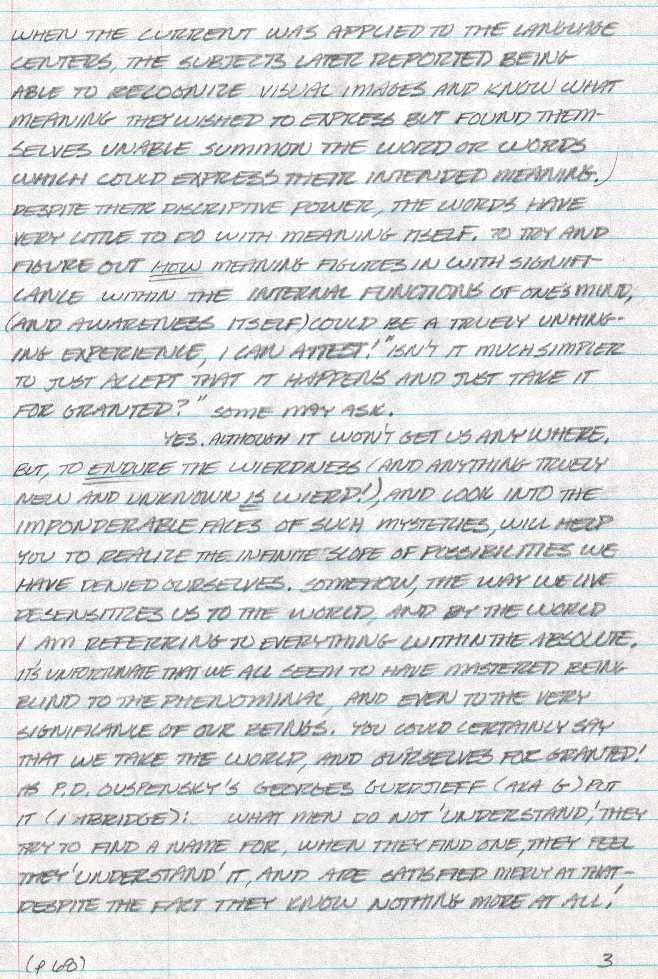 WHEN THE CURRENT WAS APPLIED TO THE LANGUAGE
CENTERS, THE SUBJECTS LATER REPORTED BEING
ABLE TO RECOGNIZE VISUAL IMAGES AND KNOW WHAT
MEANING THEY WISHED TO EXPRESS BUT FOUND THEM-
SELVES UNABLE SUMMON THE WORD OR WORDS
WHICH COULD EXPRESS THEIR INTENDED MEANING.)
DESPITE THEIR DISCRIPTIVE POWER, THE WORDS HAVE
VERY LITTLE TO DO WITH MEANING ITSELF. TO TRY AND
FIGURE OUT HOW MEANING FIGURES IN WITH SIGNIFI-
CANCE WITHIN THE INTERNAL FUNCTIONS OF ONE'S MIND,
(AND AWARENESS ITSELF) COULD BE A TRUELY UNHING-
ING EXPERIENCE, I CAN ATTEST! "ISN'T IT MUCH SIMPLER
TO JUST ACCEPT THAT IT HAPPENS AND JUST TAKE IT
FOR GRANTED?" SOME MAY ASK.
YES. ALTHOUGH IT WON'T GET US ANYWHERE.
BUT, TO ENDURE THE WIERDNESS (AND ANYTHING TRUELY
NEW AND UNKNOWN IS WIERD!), AND LOOK INTO THE
IMPONDERABLE FACES OF SUCH MYSTERIES, WILL HELP
YOU TO REALIZE THE INFINITE SCOPE OF POSSIBILITIES WE
HAVE DENIED OURSELVES. SOMEHOW, THE WAY WE LIVE
DESENSITIZES US TO THE WORLD, AND BY THE WORLD
I AM REFERRING TO EVERYTHING WITHIN THE ABSOLUTE.
IT'S UNFORTUNATE THAT WE ALL SEEM TO HAVE MASTERED BEING
BLIND TO THE PHENOMINAL, AND EVEN TO THE VERY
SIGNIFICANCE OF OUR BEINGS. YOU COULD CERTAINLY SAY
THAT WE TAKE THE WORLD, AND OURSELVES FOR GRANTED!
AS P.D. OUSPENSKY'S GEORGES GURDJIEFF (AKA G) PUT
IT (I ABRIDGE): WHAT MEN DO NOT 'UNDERSTAND,' THEY
TRY TO FIND A NAME FOR, WHEN THEY FIND ONE, THEY FEEL
THEY 'UNDERSTAND' IT, AND ARE SATISFIED MERLY AT THAT-
DESPITE THE FACT THEY KNOW NOTHING MORE AT ALL!
(P 68) 3